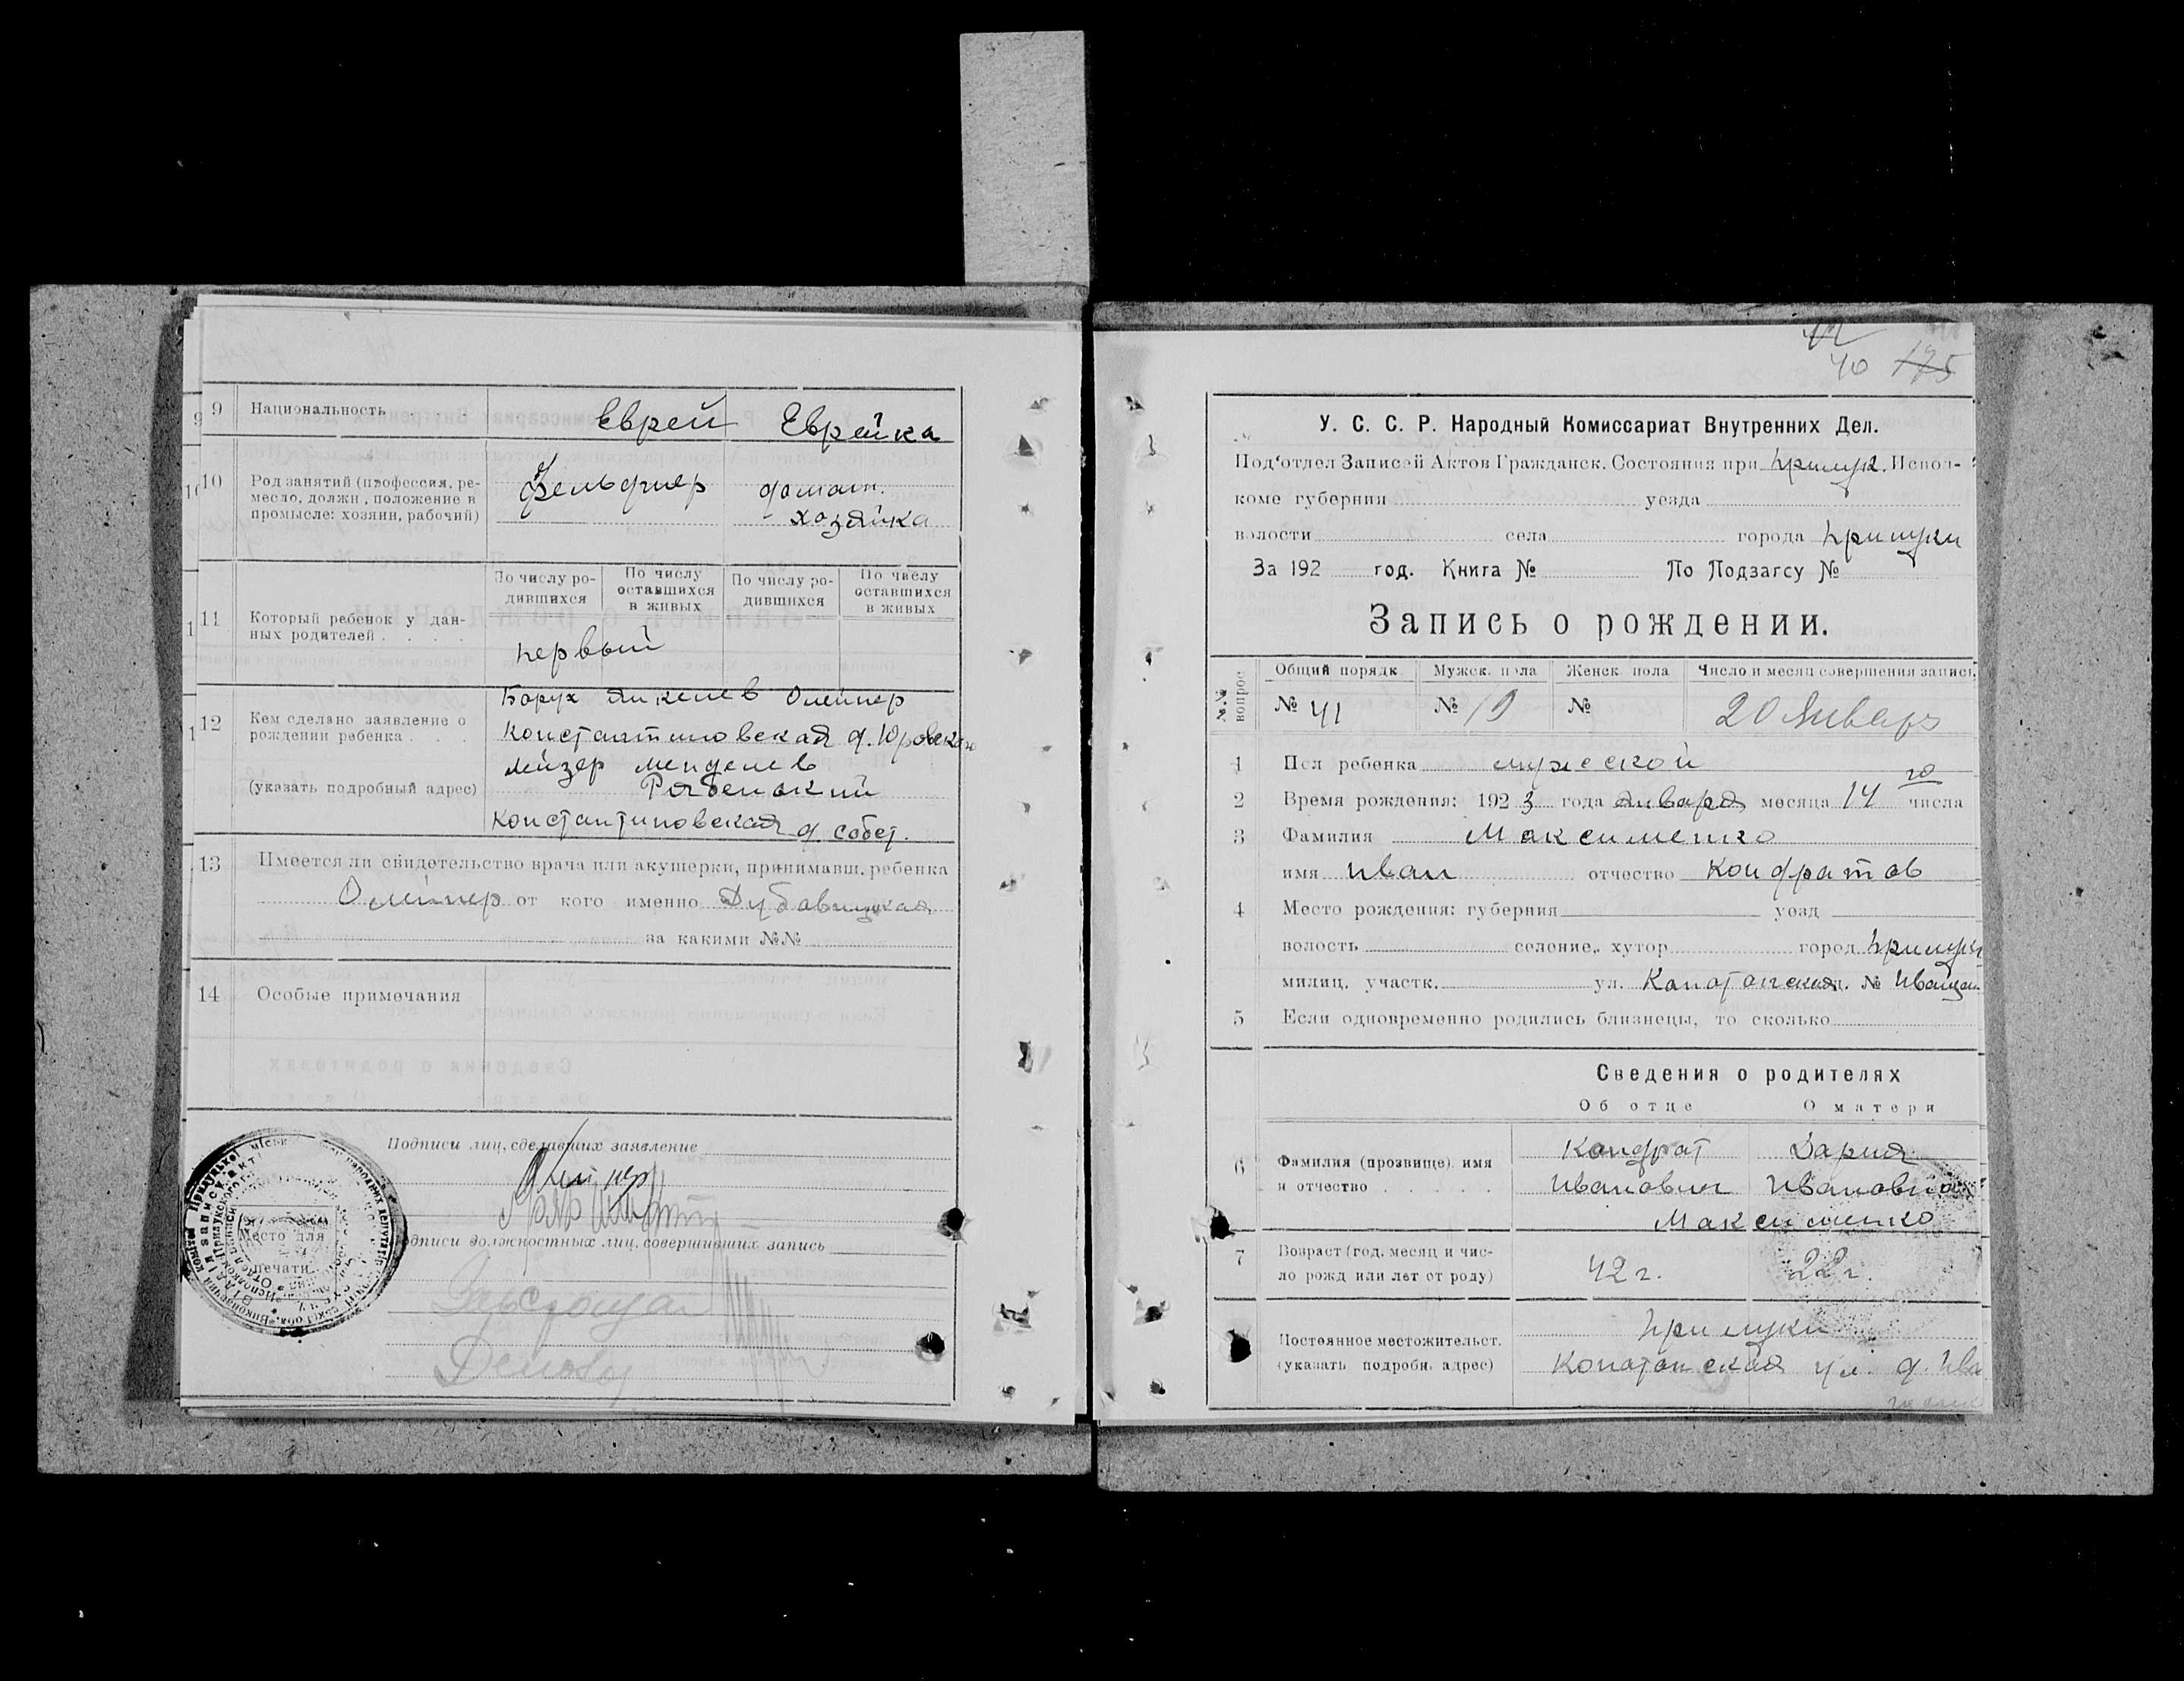 9 Национальность Еврей Еврейка
10 Род занятий (профессия, ре-
месло, должн., положение в
промысле: хозяин, рабочий)
Фельдшер домашн.
хозяйка
По числу ро-
дившихся
По числу
оставшихся
в живых
По числу ро-
дившихся
По числу
оставшихся
в живых
11 Который ребенок у дан-
ных родителей . . . .
первый
12 Кем сделано заявление о
рождении ребенка . . .
(указать подробный адрес)
Борух Янкелев Олейнер
Константиновская д. Юровского
Лейзер Менделев
Рабенский
Константиновская д. собст.
13 Имеется ли свидетельство врача или акушерки, принимавш. ребенка
Олейнер от кого именно Дубовицкая
за какими №№
14 Особые примечания
Подписи лиц, сделавших заявление
Подписи должностных лиц, совершивших запись
Место для
печати
40 175
У. С. С. Р. Народный Комиссариат Внутренних Дел.
Под'отдел Записей Актов Гражданск. Состояния при Прилук. Испол-
коме губернии уезда
волости села города Прилуки
За 192 год. Книга № По Подзагсу №
Запись о рождении.
№№ вопрос
Общий порядк. Мужск. пола Женск. пола Число и месяц совершения записи.
№ 41 № 19 № 20 Январь
1 Пол ребенка мужеской
2 Время рождения: 1923 года января месяца 14 го числа
3 Фамилия Максименко
имя Иван отчество Кондратов
4 Место рождения: губерния уезд
волость селение, хутор город Прилуки
милиц. участк. ул. Конотопская №
5 Если одновременно родились близнецы, то сколько
Сведения о родителях
Об отце О матери
6 Фамилия (прозвище) имя
и отчество . . . . .
Кондрат Дария
Иванович Ивановна
Максименко
7 Возраст (год, месяц и чис-
ло рожд или лет от роду)
42 г. 22 г.
Постоянное местожительст.
(указать подробн. адрес)
Прилуки
Конотопская ул. д. Ива